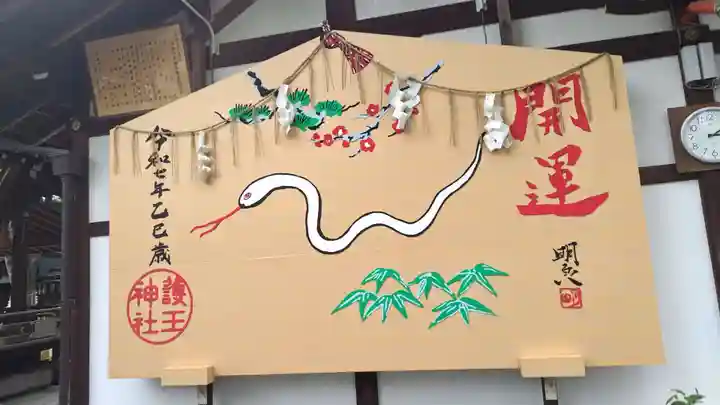 開運
令和七年乙巳歳
護王
神社